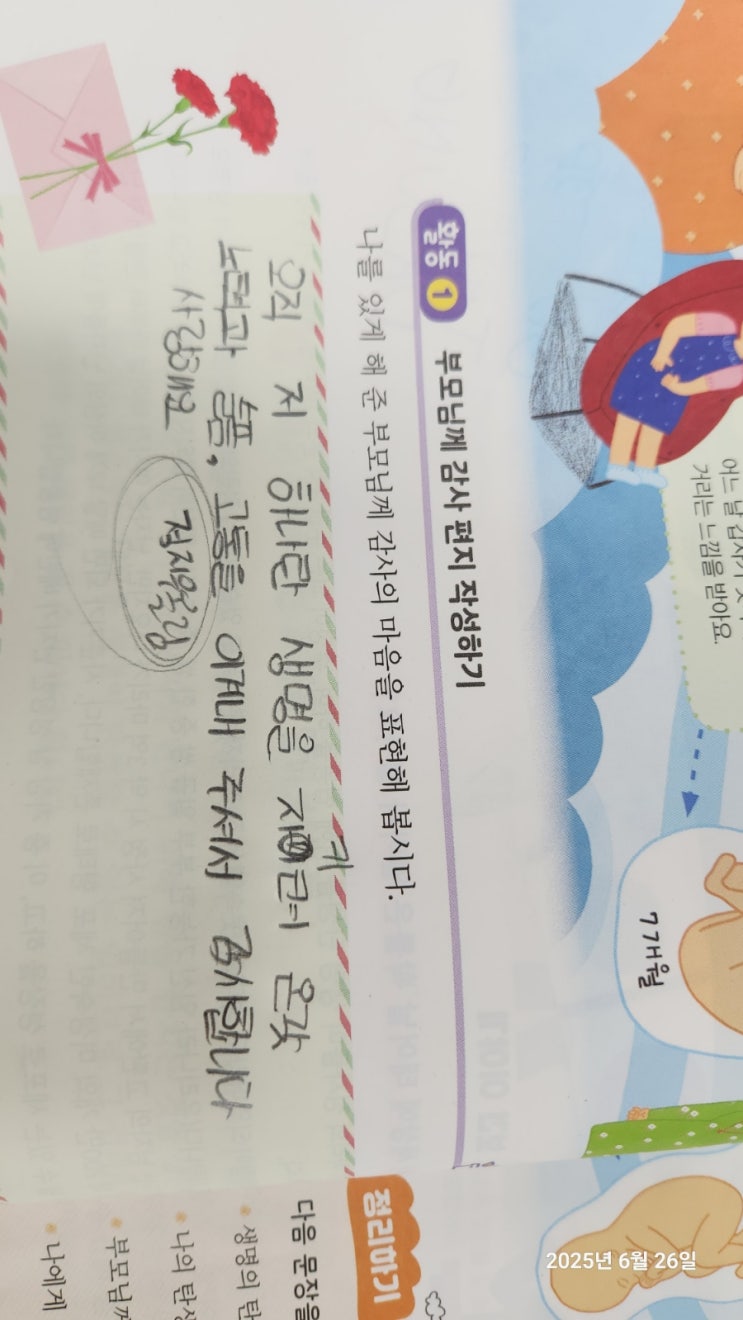 어느 날 갑자기
거리는 느낌을 받아요.
7개월
활동 1 부모님께 감사 편지 작성하기
나를 있게 해 준 부모님께 감사의 마음을 표현해 봅시다.
오직 저 하나란 생명을 지키려 온갖
노력과 슬픔, 고통을 이겨내 주셔서 감사합니다
사랑해요
정리하기
다음 문장을
생명의 탄
나의 탄생
부모님께
나에게
2025년 6월 26일